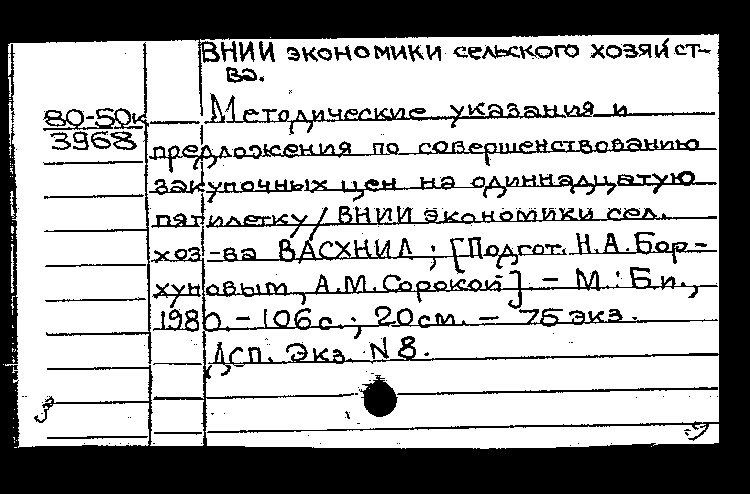 ВНИИ экономики сельского хозяйст-
ва.
80-50к
3968
Методические указания и
предложения по совершенствованию
закупочных цен на одиннадцатую
пятилетку / ВНИИ экономики сел.
хоз-ва ВАСХНИЛ ; [Подгот. Н.А.Бор-
хуновым, А.М.Сорокой]. – М.: Б.и.,
1980. – 106 с. ; 20 см. – 75 экз.
ДСП. Экз. N 8.